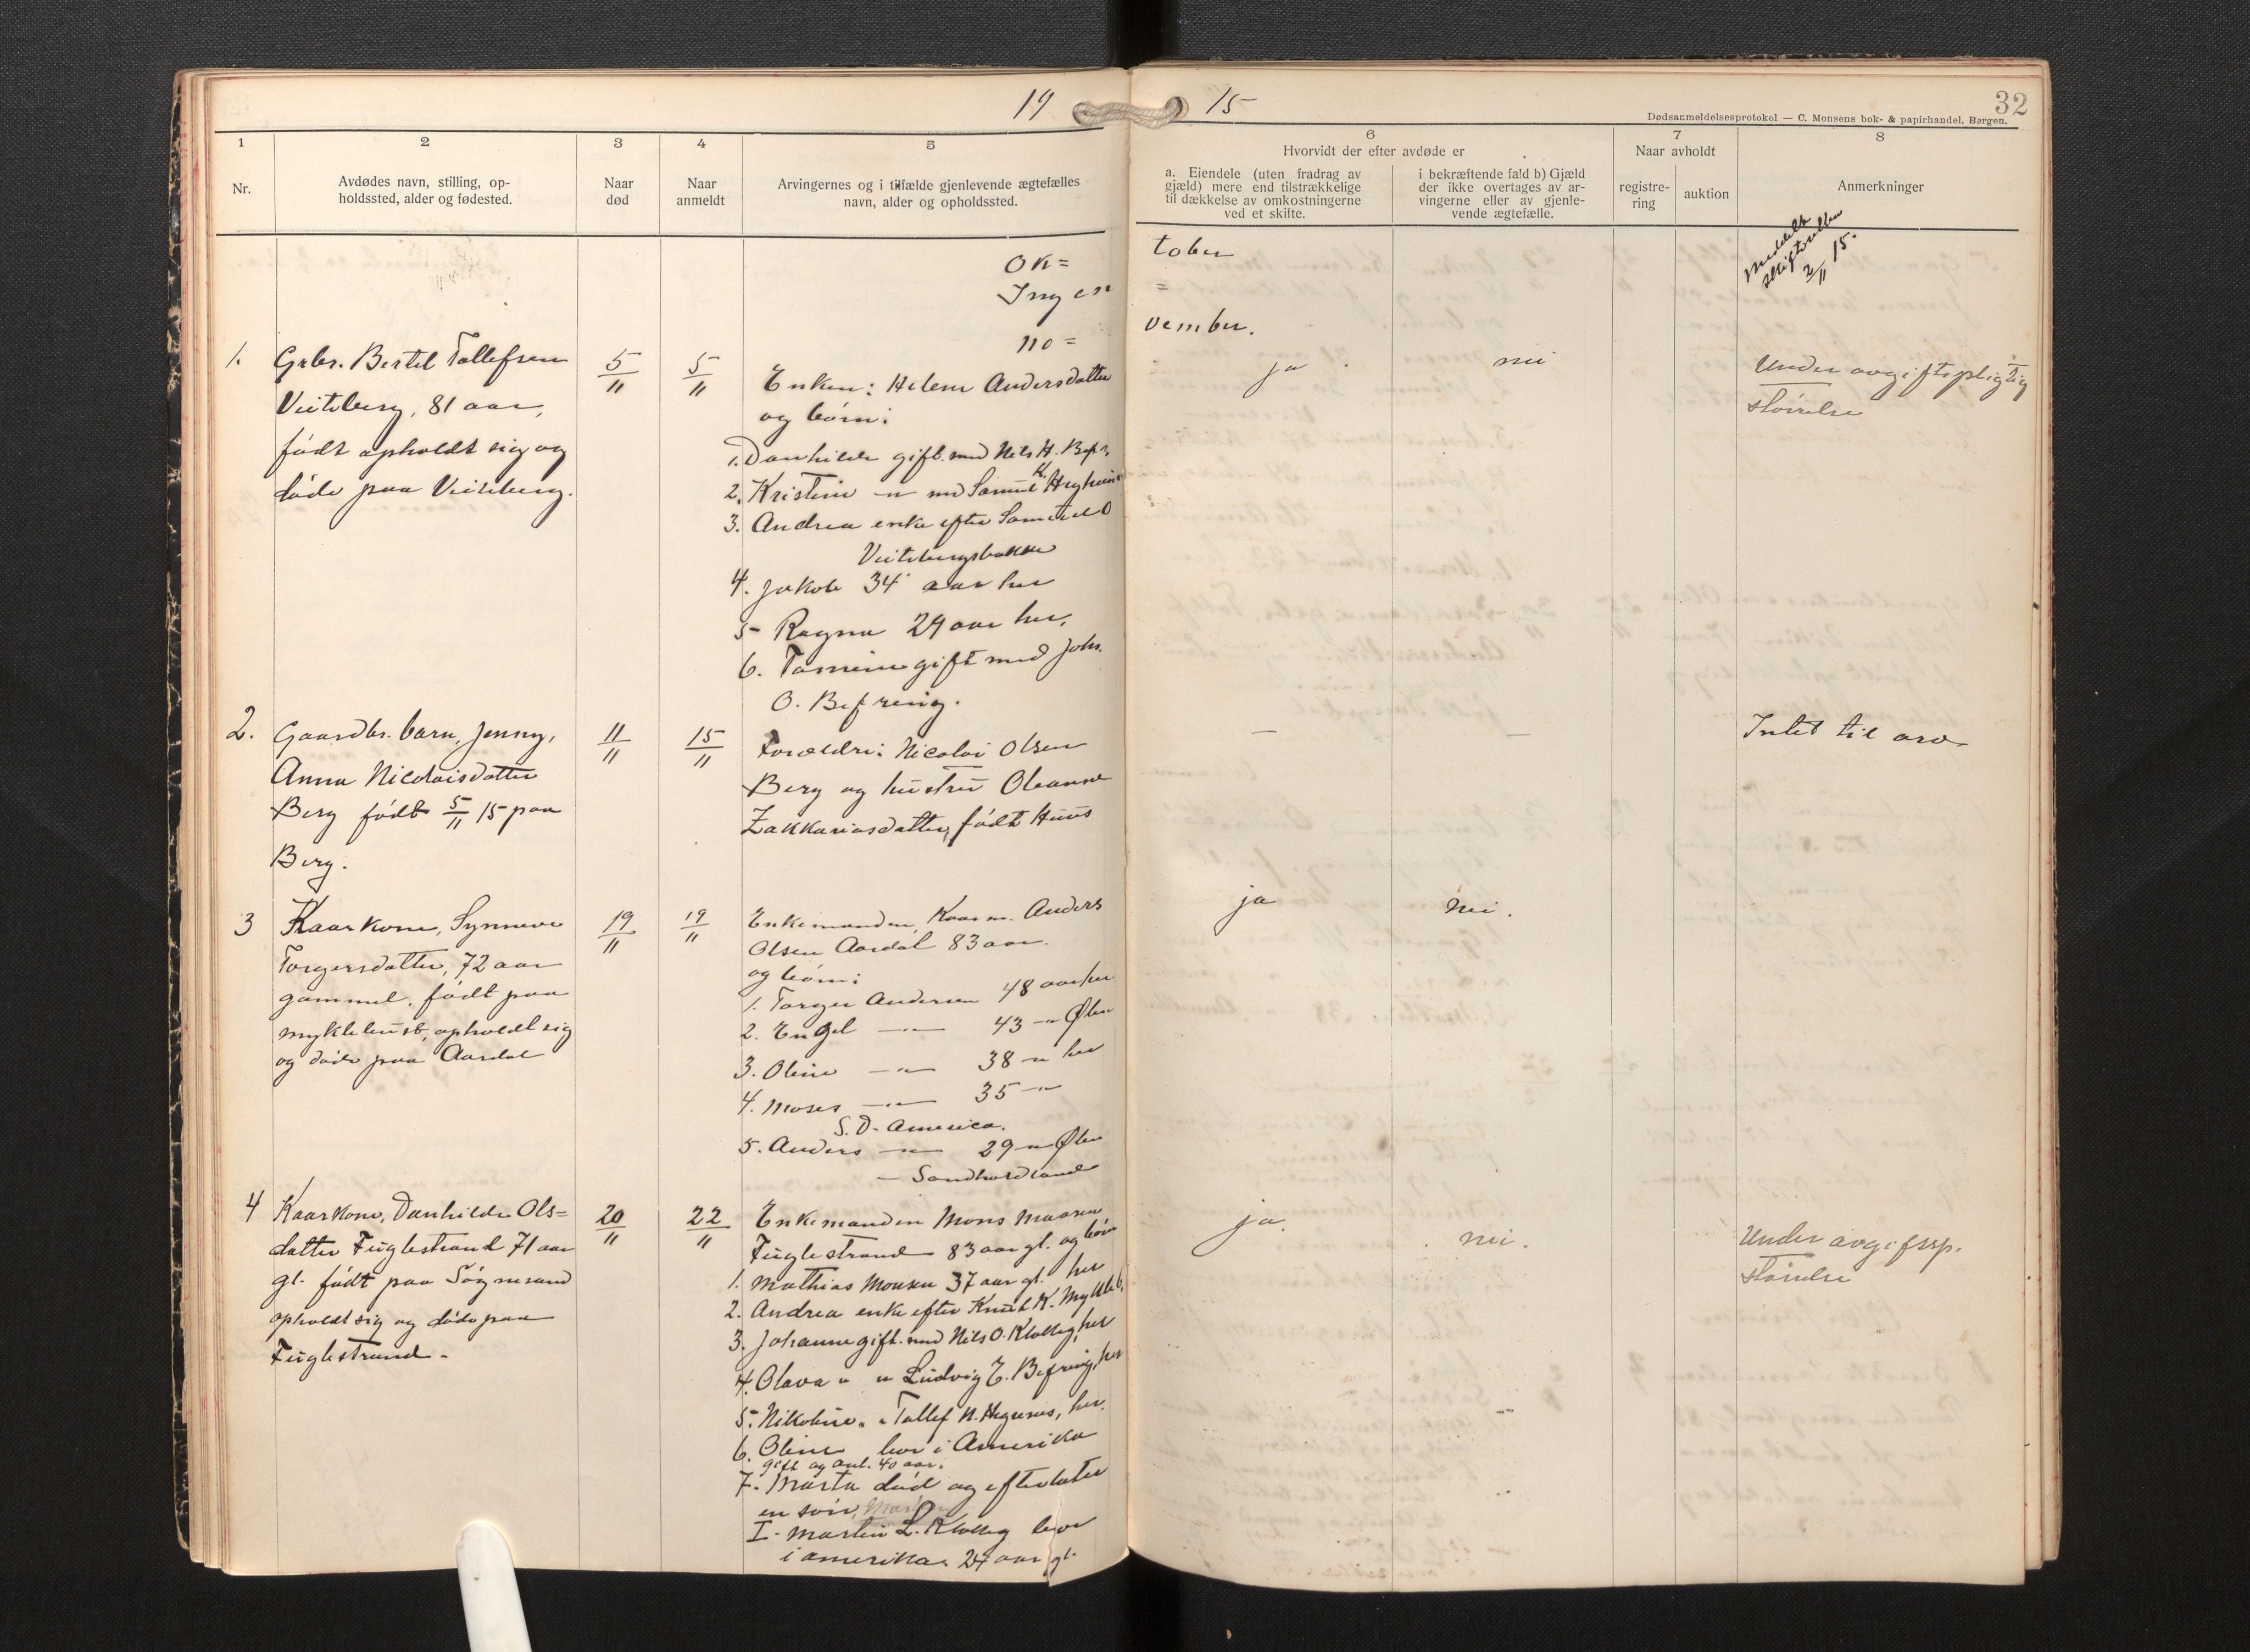 19
15
32
Dødsanmeldelsesprotokol — C. Monsens bok- & papirhandel, Bergen.
1
2
3
4
5
6
7
8
Nr.
Avdødes navn, stilling, op-
holdssted, alder og fødested.
Naar
død
Naar
anmeldt
Arvingernes og i tilfælde gjenlevende ægtefælles
navn, alder og opholdssted.
Hvorvidt der efter avdøde er
a. Eiendele (uten fradrag av
gjæld) mere end tilstrækkelige
til dækkelse av omkostningerne
ved et skifte.
i bekræftende fald b) Gjæld
der ikke overtages av ar-
vingerne eller av gjenle-
vende ægtefælle.
Naar avholdt
registre-
ring
auktion
Anmerkninger
Ok=
tober
Ingen
=
no=
vember.
Meddelt
2/11 15.
1.
Grbr. Bertel Tollefsen
Veiteberg, 81 aar,
født opholdt sig og
døde paa Veiteberg.
5/11
5/11
Enken: Helene Andersdatter
og børn:
1. Danhilde gift med Nils H. Befr.
2. Kristine -"- med Samuel K. Hegheim
3. Andrea enke efter Samuel O
Veitebergsbakke
4. Jakob 34 aar her
5 Ragna 29 aar her,
6. Tomine gift med Johs.
O. Befring.
ja
nei
Under avgiftspligtig
størrelse
2.
Gaardbr. barn, Jenny,
Anna Nicolaisdatter
Berg født 5/11 15 paa
Berg.
11/11
15/11
Forældre: Nicolai Olsen
Berg og hustru Oleanne
Zakkariasdatter, født Huus
—
—
Intet til arv
3
Kaarkone, Synneve
Torgersdatter, 72 aar
gammel, født paa
Myklebust, opholdt sig
og døde paa Aardal
19/11
19/11
Enkemanden, Kaarm. Anders
Olsen Aardal 83 aar.
og børn:
1. Torger Andersen 48 aar her
2. Engel -"- 43 -"- Ølen
3. Oline -"- 38 -"- her
4. Moses -"- 35 -"-
S.D. America.
5. Anders -"- 29 -"- Ølen
— Søndhordland
ja
nei.
4
Kaarkone, Danhilde Ols=
datter Fuglestrand 71 aar
gl. født paa Søgnesand
opholdt sig og døde paa
Fuglestrand.
20/11
22/11
Enkemanden Mons Monsen
Fuglestrand 83 aar gl. og børn
1. Mathias Monsen 37 aar gl. her
2. Andrea enke efter Knut K. Mykleb.
3. Johanne gift med Nils O. Kvalleg, her
4. Olava " " Ludvig E. Befring, her
5. Nikoline " " Tollef N. Hegrenes, her.
6. Oline bor i Amerika
gift og ant. 40 aar.
7. Marta død og efterlater
en søn
I. Martin L. Kvalleg bor
i Amerika 24 aar gl.
ja.
nei.
Under avgifssp.
størrelse